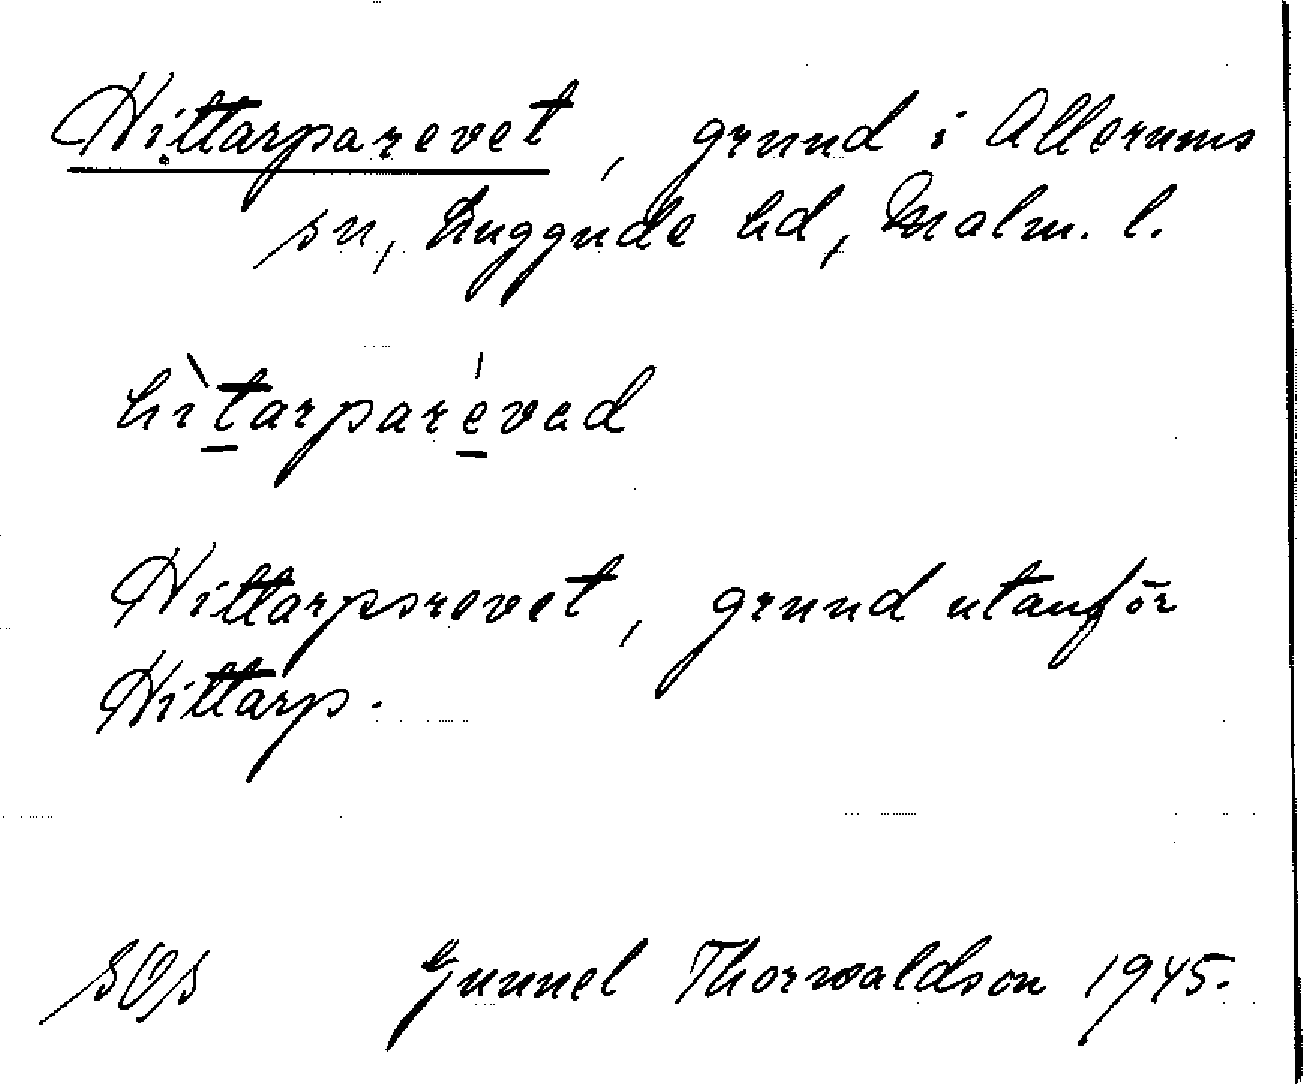 Hittarparevet, grund i Allerums
sn, Luggude hd, Malm. l.
hìtarparévad
Hittarpsrevet, grund utanför
Hittarp.
SOS Gunnel Thorwaldson 1945.